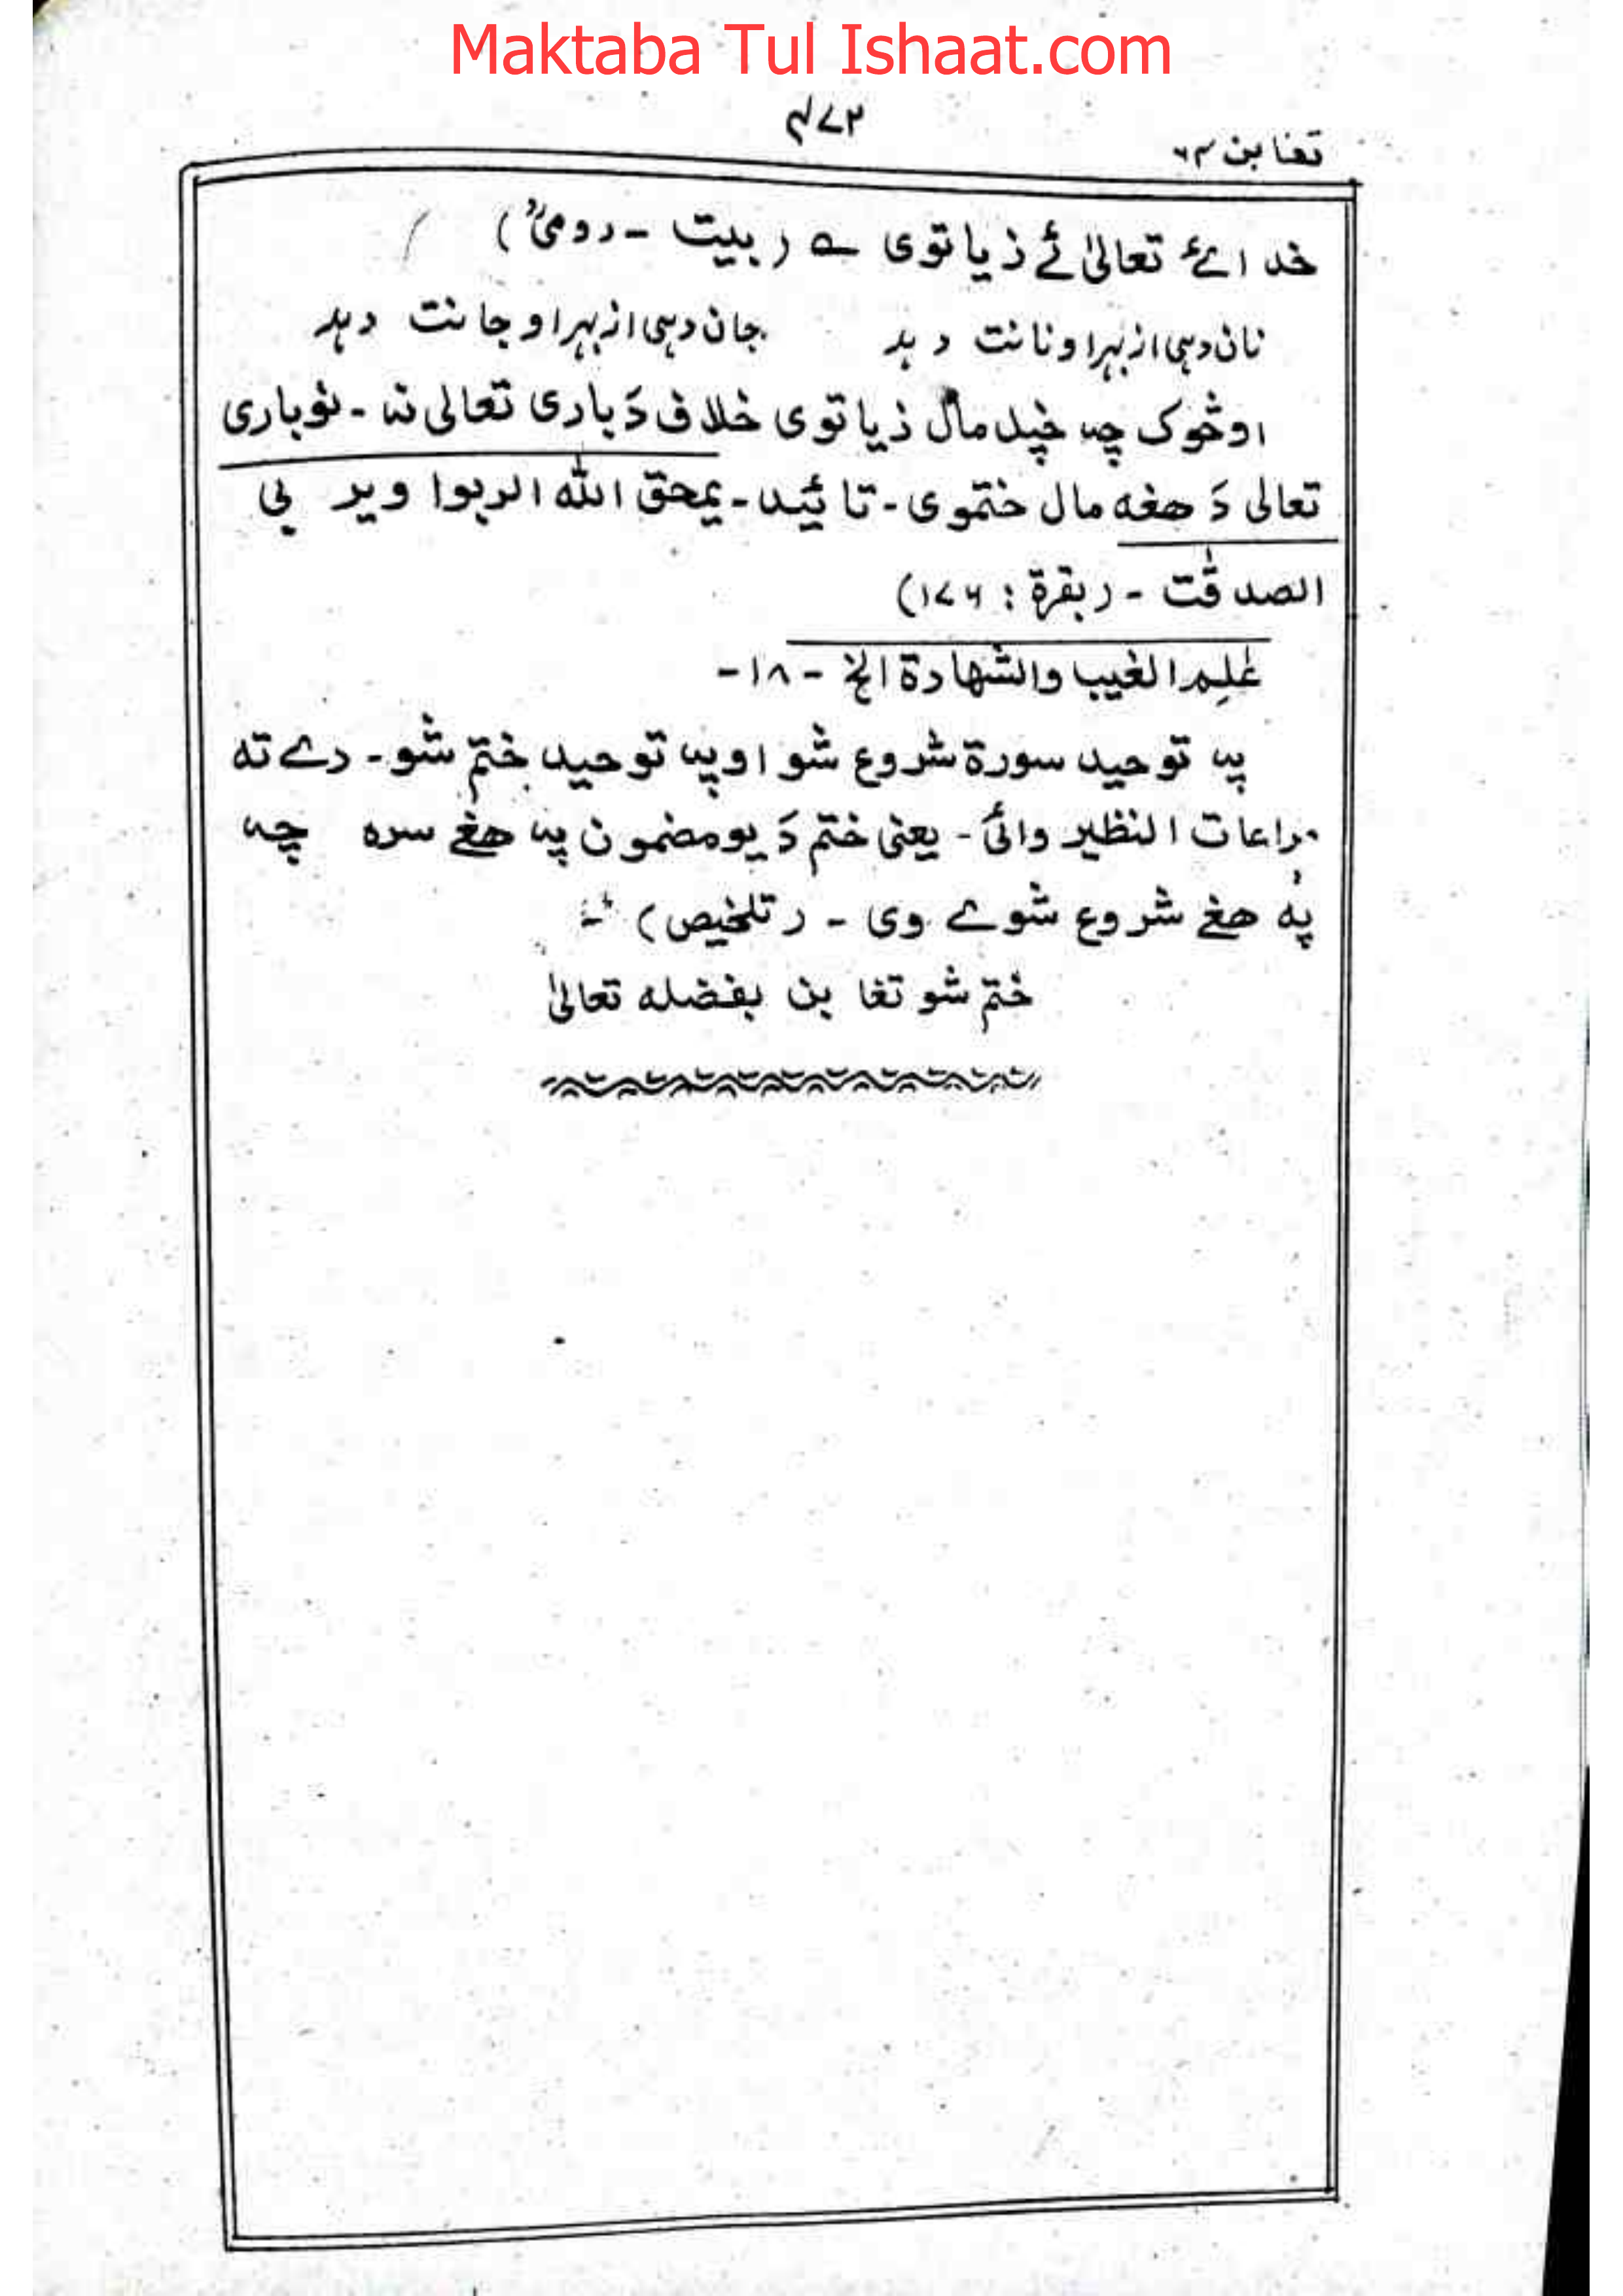 Maktaba Tul Ishaat.com
۴۷۲
تغابن ۶۴
خدائے تعالیٰ ئے ذیاتوی ؎ (بیت - رومیؒ)
نان دہی از بہر او نانت دہد جان دہی از بہر او جانت دہد
اوڅوک چہ خپل مال ذیاتوی خلاف دَ باری تعالی نہ - نو باری
تعالی دَ ھغہ مال ختموی - تائید - یمحق اللہ الربوا ویربی
الصدقٰت - (بقرۃ : ۱۷۶)
عٰلِم الغیب والشھادۃ الخ - ۱۸ -
پہ توحید سورۃ شروع شو او پہ توحید ختم شو - دے تہ
مراعات النظیر وائی - یعنی ختم دَ یو مضمون پہ ھغے سرہ چہ
پہ ھغے شروع شوے وی - (تلخیص)
ختم شو تغابن بفضلہ تعالیٰ